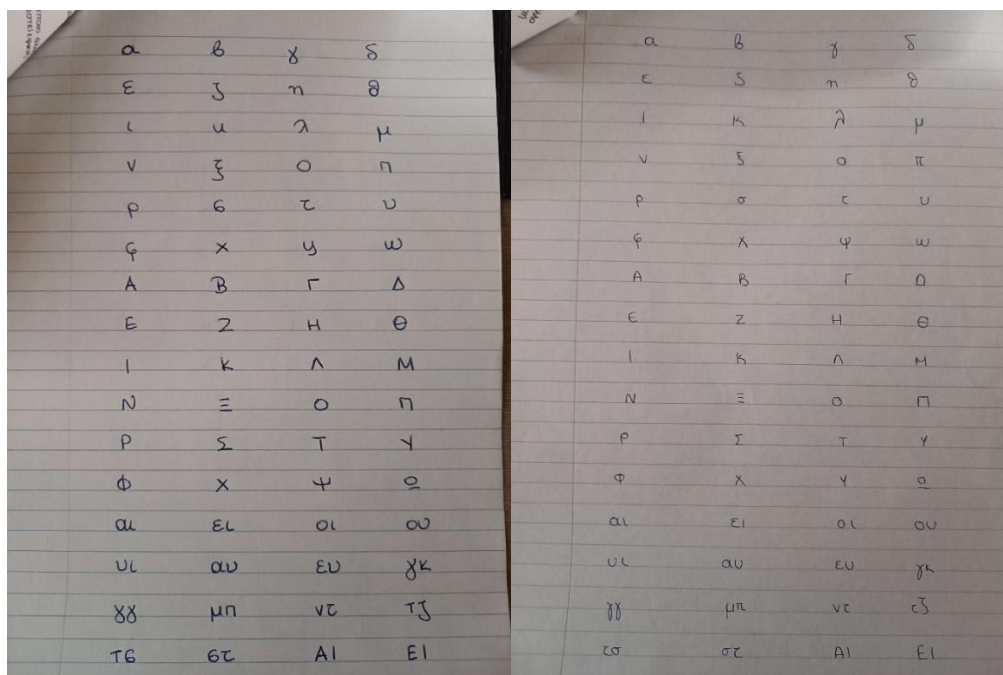 α β γ δ
ε ζ η θ
ι κ λ μ
ν ξ ο π
ρ σ τ υ
φ χ ψ ω
Α Β Γ Δ
Ε Ζ Η Θ
Ι Κ Λ Μ
Ν Ξ Ο Π
Ρ Σ Τ Υ
Φ Χ Ψ Ω
αι ει οι ου
υι αυ ευ γκ
γγ μπ ντ τζ
τσ στ ΑΙ ΕΙ
α β γ δ
ε ζ η θ
ι κ λ μ
ν ξ ο π
ρ σ τ υ
φ χ ψ ω
Α Β Γ Δ
Ε Ζ Η Θ
Ι Κ Λ Μ
Ν Ξ Ο Π
Ρ Σ Τ Υ
Φ Χ Ψ Ω
αι ει οι ου
υι αυ ευ γκ
γγ μπ ντ τζ
τσ στ ΑΙ ΕΙ